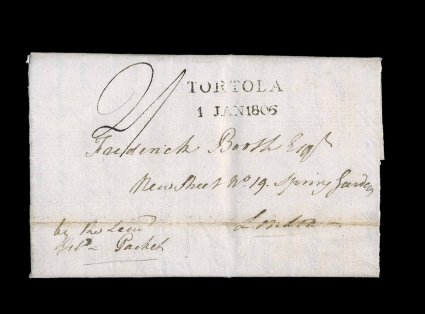 TORTOLA
1 JAN 1806
Frederick Booth Esqr
New Street No. 19. Spring Garden
London
by the
Packet